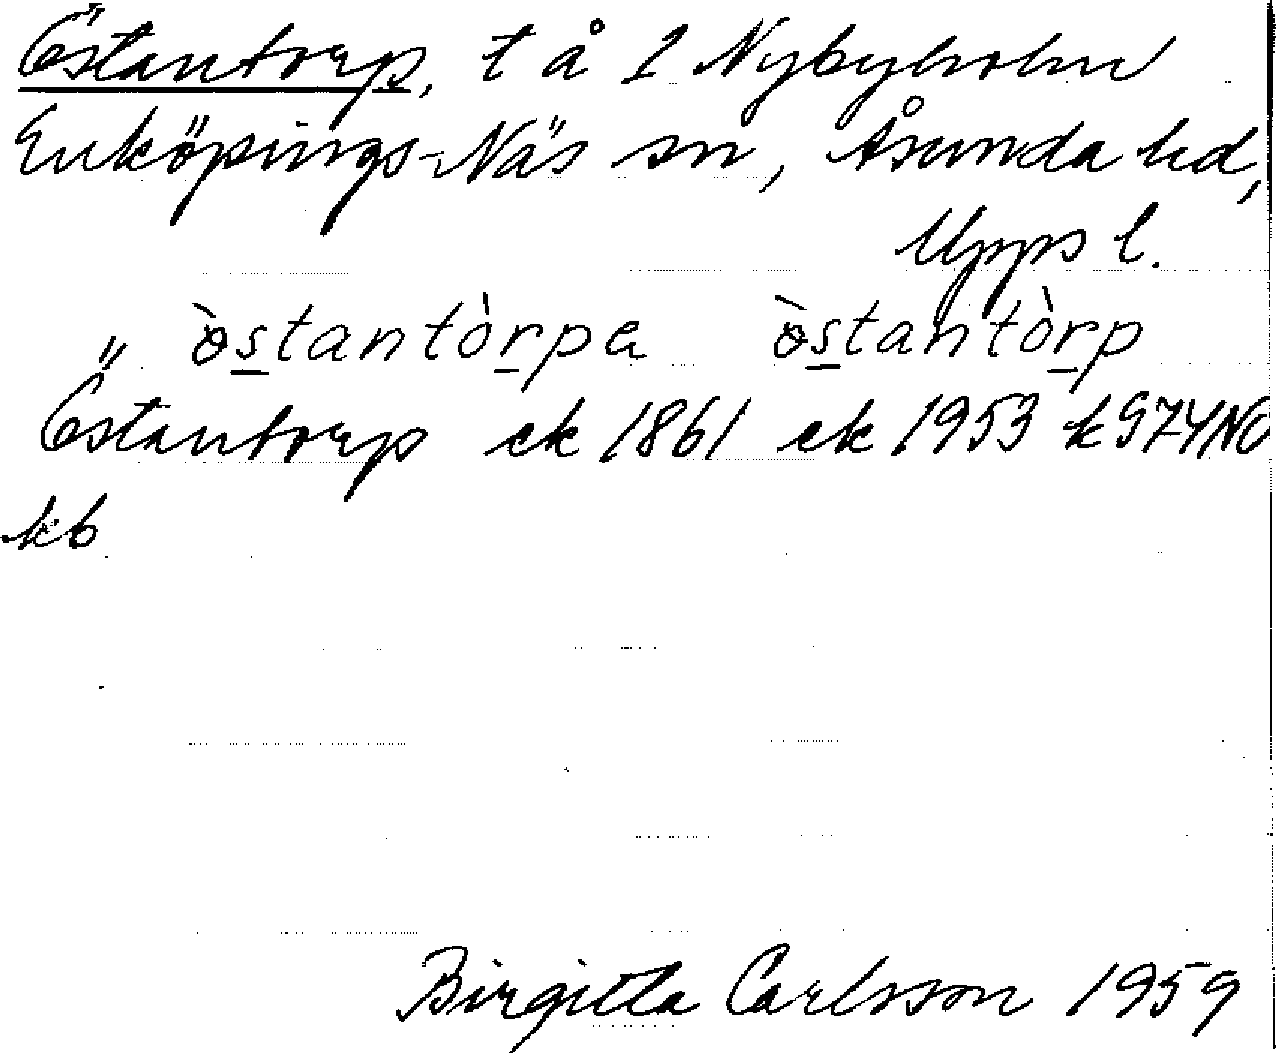 Östantorp, t å 1 Nybyholm
Enköpings-Näs sn, Åsunda hd,
Upps l.
ö̀stantòrpa ö̀stantòrp
Östantorp ek 1861 ek 1953 k 974NO
kb
Birgitta Carlsson 1959